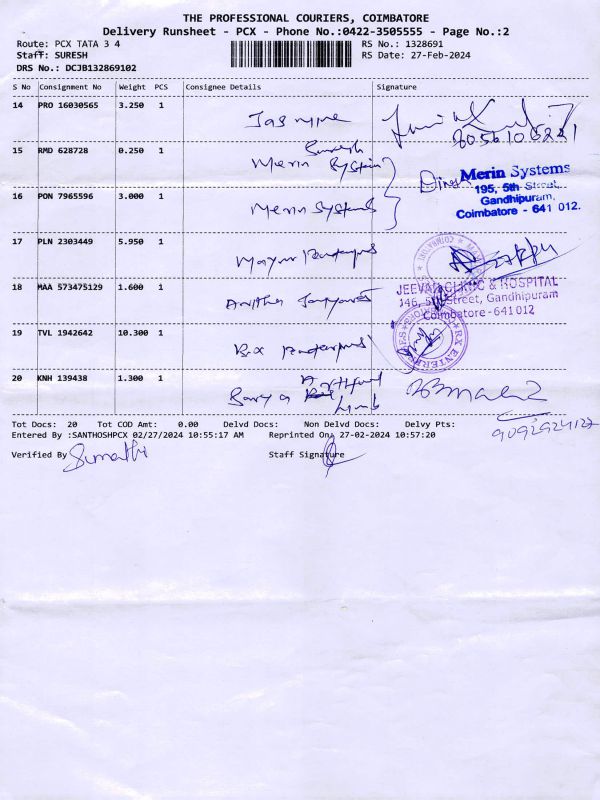 THE PROFESSIONAL COURIERS, COIMBATORE
Delivery Runsheet - PCX - Phone No.:0422-3505555 - Page No.:2
Route: PCX TATA 3 4
Staff: SURESH
DRS No.: DCJB132869102
RS No.: 1328691
RS Date: 27-Feb-2024
S No Consignment No Weight PCS Consignee Details Signature
14 PRO 16030565 3.250 1
15 RMD 628728 0.250 1 Merin System
16 PON 7965596 3.000 1 Merin Systems
Merin Systems
195, 5th Street,
Gandhipuram,
Coimbatore - 641 012.
17 PLN 2303449 5.950 1
18 MAA 573475129 1.600 1
JEEVAN CLINIC & HOSPITAL
146, 5th Street, Gandhipuram
Coimbatore - 641012
19 TVL 1942642 10.300 1
RX ENTERPRISES
20 KNH 139438 1.300 1
9092924127
Tot Docs: 20 Tot COD Amt: 0.00 Delvd Docs: Non Delvd Docs: Delvy Pts:
Entered By :SANTHOSHPCX 02/27/2024 10:55:17 AM Reprinted On: 27-02-2024 10:57:20
Verified By Sumathi Staff Signature